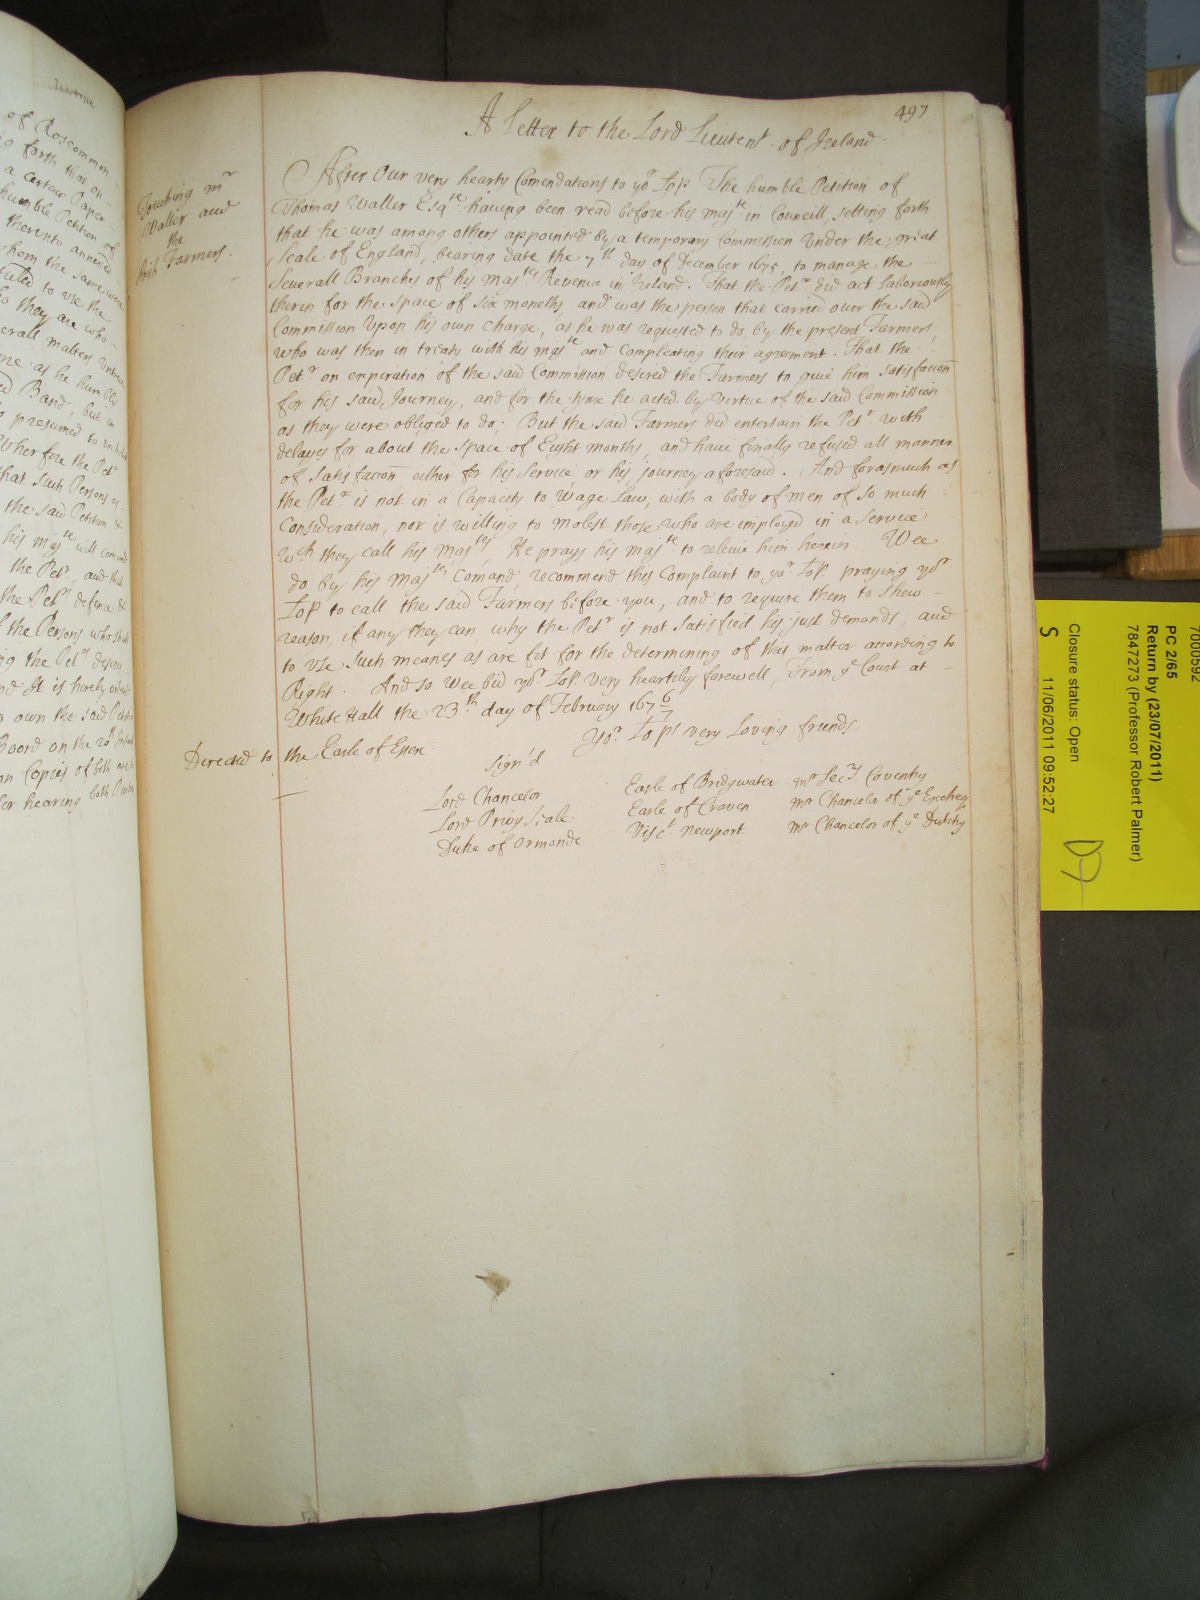 497
A Letter to the Lord Lieutent. of Ireland.
Touching mr
Waller and
the
Irish Farmers.
After Our very hearty Comendations to yor Lop. The humble Petition of
Thomas Waller Esqre. having been read before his majte in Councill, setting forth
that he was among others appointed by a temporary Commission Under the great
Seale of England, bearing date the 7th day of December 1675, to manage the
Severall Branches of his majtys Revenue in Ireland. That the Petr. did act laboriously
therin for the space of six moneths, and was the person that carried over the said
Commission Upon his own charge, as he was requested to do, by the present Farmers
who was then in treaty with his majte and compleating their agreement. That the
Petr. on expiration of the said Commission desired the Farmers to give him satisfacon
for his said Journey, and for the tyme he acted by virtue of the said Commission
as they were obliged to do; But the said Farmers did entertain the Petr. with
delayes for about the space of Eight months, and have finally refused all manner
of satisfacon either for his Service, or his journey aforesaid. And forasmuch as
the Petr. is not in a Capacity to Wage Law, with a body of men of so much
Consideration, nor is willing to molest those who are imployed in a Service
wch they call his majtys, He prays his majte to releive him herein. Wee
do by his majtys Comand recommend this Complaint to yor. Lop. praying yor
Lop to call the said Farmers before you, and to require them to shew
reason, if any they can, why the Petr is not satisfied his just demands, and
to use such meanes as are fit for the determining of this matter according to
Right. And so Wee bid yor. Lop. very heartily farewell, From ye Court at
White Hall the 23th day of February 167 6/7
Yor. Lops very Loving friends.
Directed to the Earle of Essex.
Sign'd
Lord Chancelor
Lord Privy Seale
Duke of Ormonde
Earle of Bridgwater
Earle of Craven
Visct. Newport
mr Secry. Coventry
mr Chancelor of ye Excheqr
mr Chancelor of ye Dutchy
of Roscommon
forth that on
a certain Paper
humble Petition of
therento annexed
whom the same were
to use the
they are who
erall matters
me as he humbly
Band, but in
presumed to
Wherfore the Petr
that such Persons
the said Petition &
his majte will
the Petr. and that
the Petr. defence &
the Persons who
the Petr.
It is hereby
own the said
Board on the 20th
on Copies of both
for hearing both
7000592
PC 2/65
Return by (23/07/2011)
7847273 (Professor Robert Palmer)
Closure status: Open
S 11/06/2011 09:52:27